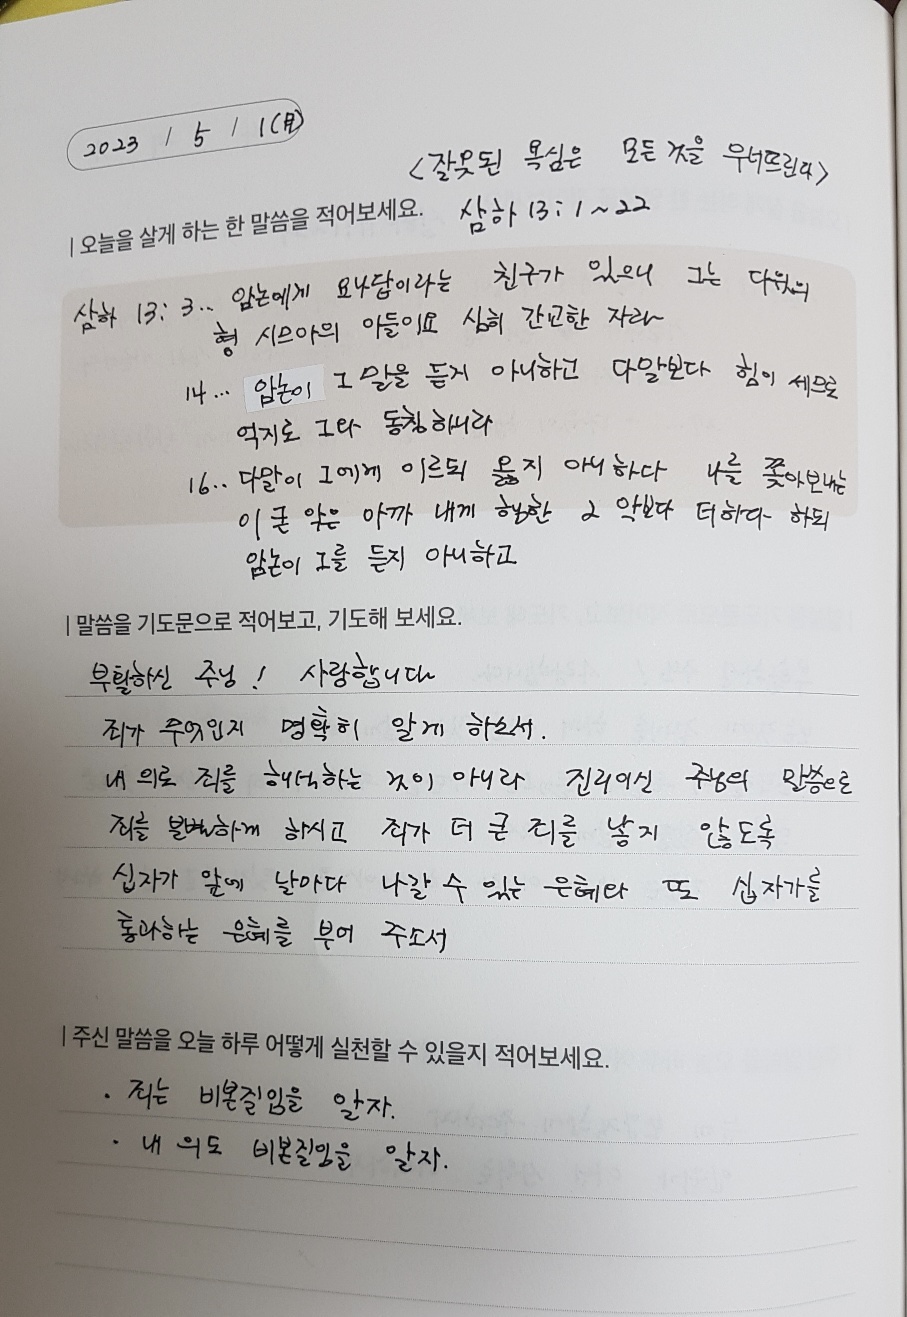 2023 / 5 / 1 (月)
<잘못된 욕심은 모든 것을 무너뜨린다>
| 오늘을 살게 하는 한 말씀을 적어보세요. 삼하 13:1~22
삼하 13:3.. 암논에게 요나답이라는 친구가 있으니 그는 다윗의
형 시므아의 아들이요 심히 간교한 자라
14... 암논이 그 말을 듣지 아니하고 다말보다 힘이 세므로
억지로 그와 동침하니라
16.. 다말이 그에게 이르되 옳지 아니하다 나를 쫓아보내는
이 큰 악은 아까 내게 행한 그 악보다 더하다 하되
암논이 그를 듣지 아니하고
| 말씀을 기도문으로 적어보고, 기도해 보세요.
부활하신 주님! 사랑합니다
죄가 무엇인지 명확히 알게 하소서.
내 의로 죄를 해석하는 것이 아니라 진리이신 주님의 말씀으로
죄를 분별하게 하시고 죄가 더 큰 죄를 낳지 않도록
십자가 앞에 날마다 나갈 수 있는 은혜와 또 십자가를
통과하는 은혜를 부어 주소서
| 주신 말씀을 오늘 하루 어떻게 실천할 수 있을지 적어보세요.
· 죄는 비본질임을 알자.
· 내 의도 비본질임을 알자.